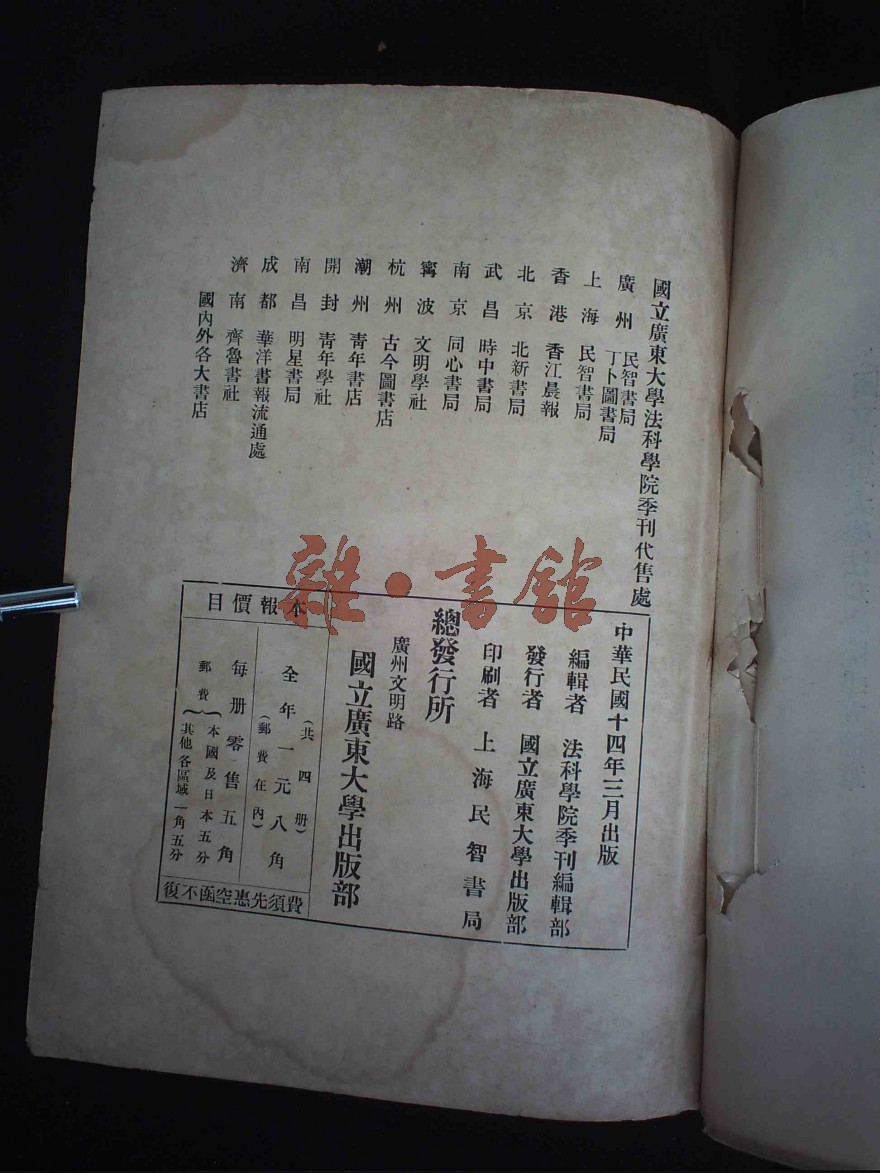 國立廣東大學法科學院季刊代售處
廣州 民智書局
丁卜圖書局
上海 民智書局
香港 香江晨報
北京 北新書局
武昌 時中書局
南京 同心書局
寗波 文明學社
杭州 古今圖書店
潮州 青年書店
開封 青年學社
南昌 明星書局
成都 華洋書報流通處
濟南 齊魯書社
國內外各大書店
中華民國十四年三月出版
編輯者 法科學院季刊編輯部
發行者 國立廣東大學出版部
印刷者 上海民智書局
總發行所
廣州文明路
國立廣東大學出版部
本報價目
(共四册)
全年一元八角
(郵費在內)
每册零售五角
郵費 本國及日本五分
其他各區域一角五分
費須先惠空函不復
雜·書館